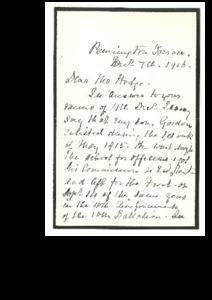 Pennington Terrace.
Dec 7th. 1916.
Dear Mr Hodge.
In answer to your
memo of 4th Dec. I may
say that my son. Gordon
enlisted during the 1st week
of May 1915. He went through
the School for Officers & got
his Commission as 2nd Lieut
and left for the Front on
Sept. of the same year
in the 10th Reinforcements
of the 10th Battalion.